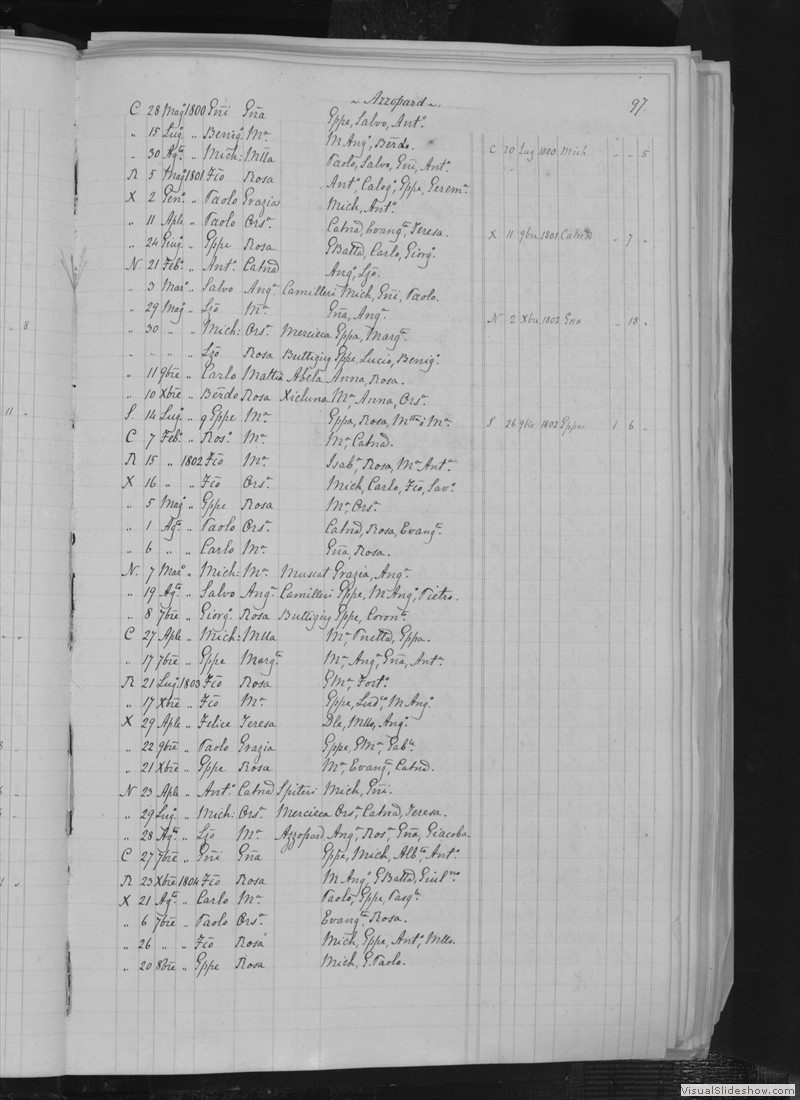 ~ Azzopard ~ 97.
C 28 Mag.º 1800 Gñi Gña Gppe, Salvo, Ant.º
„ 15 Lug.º „ Benig.º M.ª M. Ang.º, Bẽrdo.
„ 30 Ag.º „ Mich: Mlla Paolo, Salvo, Gñi, Ant.º C 20 Lug 1800 Mich „ „ 5
R 5 Mag.º 1801 Fc̃o Rosa Ant.º, Calog.º, Gppe, Gerem.ª
X 2 Gen.º „ Paolo Grazia Mich, Ant.º
„ 11 Aple „ Paolo Ors.ª Catnã, Evang.ª, Teresa.
„ 24 Giug.º „ Gppe Rosa GBatta, Carlo, Giorg.º X 11 9bre 1801 Catnã „ 7 „
N 21 Feb.º „ Ant.º Catnã Ang.º, Lz̃o.
„ 3 Mar.º „ Salvo Ang.ª Camilleri Mich, Gñi, Paolo.
„ 29 Mag.º „ Lz̃o M.ª Gña, Ang.ª
„ 30 „ „ Mich: Ors.ª Mercieca Gppa, Marg.ª N 2 Xbre 1802 Gña „ 18 „
„ „ „ „ Lz̃o Rosa Buttigieg Gppe, Lucio, Benig.º
„ 11 9bre „ Carlo Mattia Abela Anna, Rosa.
„ 10 Xbre „ Bẽrdo Rosa Xicluna M.ª, Anna, Ors.ª
S. 14 Lug.º „ q Gppe M.ª Gppa, Rosa, M.ª S 26 9bre 1802 Gppa 1 6 „
C 7 Feb.º „ Ros.º M.ª M.ª, Catnã.
R 15 „ 1802 Fc̃o M.ª Isab.ª, Rosa, M.ª Ant.ª
X 16 „ „ Fc̃o Ors.ª Mich, Carlo, Fc̃o, Sav.º
„ 5 Mag.º „ Gppe Rosa M.ª Ors.ª
„ 1 Ag.º „ Paolo Ors.ª Catnã, Rosa, Evang.ª
„ 6 „ „ Carlo M.ª Gña, Rosa.
N. 7 Mar.º „ Mich: M.ª Muscat Grazia, Ang.ª
„ 19 Ag.º „ Salvo Ang.ª Camilleri Gppe, M. Ang.º, Pietro.
„ 8 7bre „ Giorg.º Rosa Buttigieg Gppe, Coron.ª
C 27 Aple „ Mich: Mlla M.ª, Pnetta, Gppa.
„ 17 7bre „ Gppe Marg.ª M.ª Ang.ª, Gña, Ant.ª
R 21 Lug.º 1803 Fc̃o Rosa GM.ª, Fort.º
„ 17 Xbre „ Fc̃o M.ª Gppe, Lud.co, M. Ang.º
X 29 Aple „ Felice Teresa Dle, Mlla, Ang.º
„ 22 9bre „ Paolo Grazia Gppe, GM.ª, Gab.le
„ 21 Xbre „ Gppe Rosa M.ª, Evang.ª, Catnã.
N 23 Aple „ Ant.º Catnã Spiteri Mich, Gñi.
„ 29 Lug.º „ Mich: Ors.ª Mercieca Ors.ª, Catnã, Teresa.
„ 28 Ag.º „ Lz̃o M.ª Azzopard Ang.ª, Ros.ª, Gña, Giacoba.
C 27 7bre „ Gñi Gña Gppe, Mich, Alb.to, Ant.º
R 23 Xbre 1804 Fc̃o Rosa M. Ang.º, GBatta, Guel.mo
X 21 Ag.º „ Carlo M.ª Paolo, Gppe, Pasq.le
„ 6 7bre „ Paolo Ors.ª Evang.ª Rosa.
„ 26 „ „ Fc̃o Rosa Mich, Gppe, Ant.º, Mlla.
„ 20 8bre „ Gppe Rosa Mich, G. Paolo.
8
11
VisualSlideshow.com